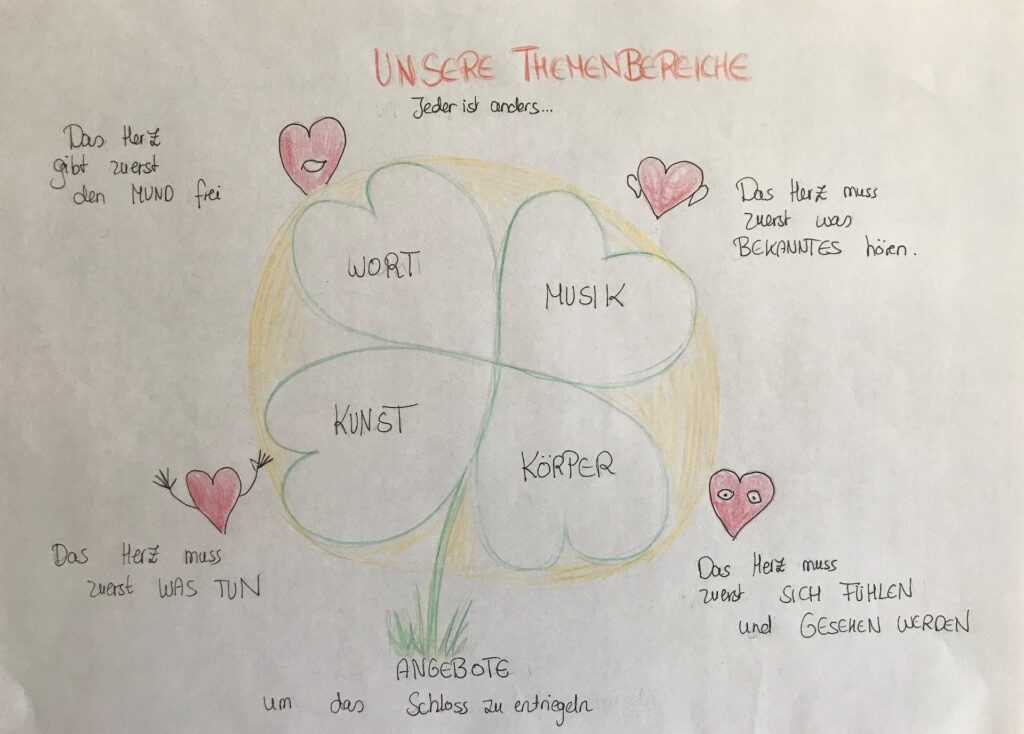 UNSERE THEMENBEREICHE
Jeder ist anders...
Das Herz
gibt zuerst
den MUND frei
Das Herz muss
zuerst was
BEKANNTES hören.
WORT
MUSIK
KUNST
KÖRPER
Das Herz muss
zuerst WAS TUN
Das Herz muss
zuerst SICH FÜHLEN
und GESEHEN WERDEN
ANGEBOTE
um das Schloss zu entriegeln